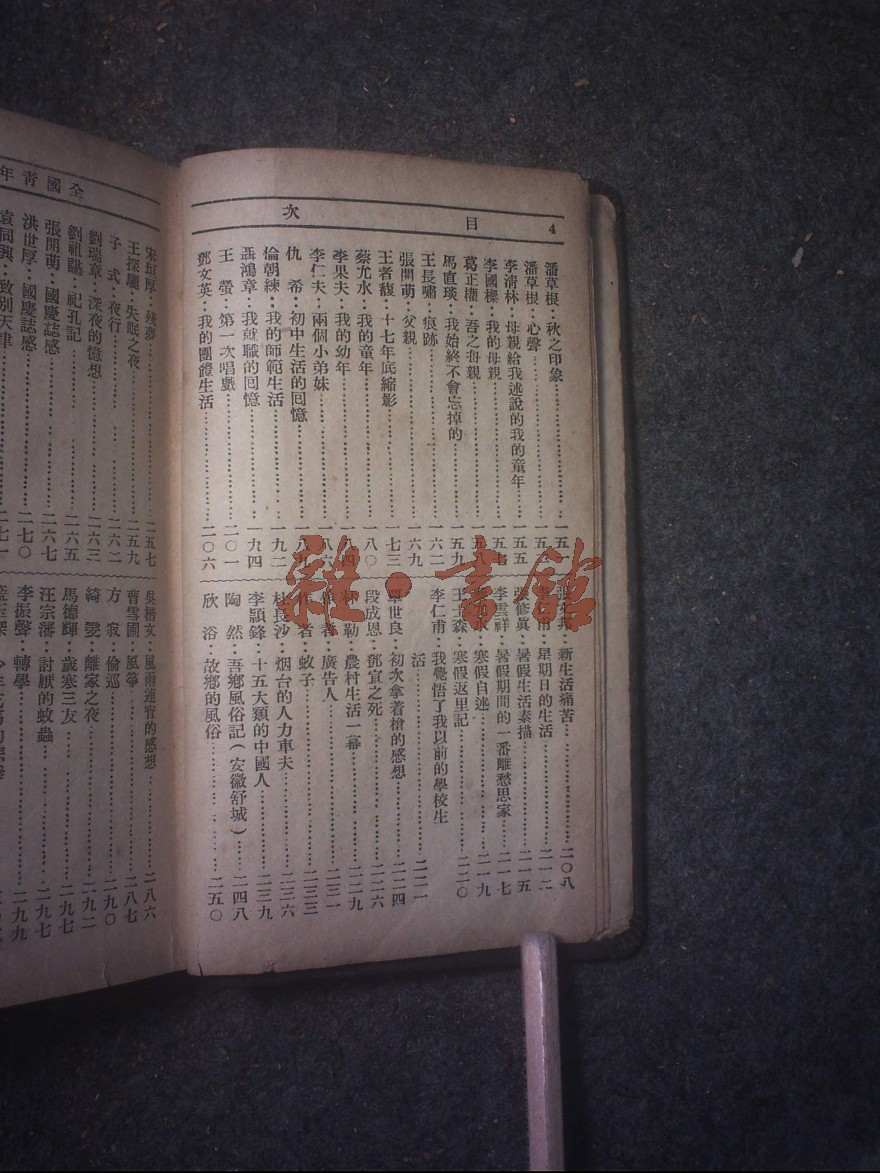 4 目次
潘草根：秋之印象……一五一
潘草根：心聲……一五
李清林：母親給我述說的我的童年……一五五
李國樑：我的母親……一五七
葛正權：吾之母親……一五八
馬直琰：我始終不會忘掉的……一五九
王長嘯：痕跡……一六二
張開萌：父親……一六九
王者馥：十七年底縮影……一七三
蔡尤水：我的童年……一八〇
李果夫：我的幼年……一八四
李仁夫：兩個小弟妹……一八六
仇希：初中生活的囘憶……一八九
倫朝練：我的師範生活……一九二
聶鴻章：我就職的囘憶……一九四
王螢：第一次唱戲……二〇一
鄧文英：我的團體生活……二〇六
新生活痛苦……二〇八
星期日的生活……二一二
張修眞：暑假生活素描……二一五
李雲祥：暑假期間的一番離愁思家……二一七
永：寒假自述……二一九
王士森：寒假返里記……二二〇
李仁甫：我覺悟了我以前的學校生
活……二二一
單世良：初次拿着槍的感想……二二四
段成恩：鄧宣之死……二二六
勒：農村生活一幕……二二九
者：廣告人……二三一
者：蚊子……二三三
杜良沙：烟台的人力車夫……二三六
李頴鋒：十五大類的中國人……二三九
陶然：吾鄉風俗記（安徽舒城）……二四八
欣浴：故鄉的風俗……二五〇
全國靑年
宋垣厚：殘夢……二五七
王探驪：失眠之夜……二五九
子式：夜行……二六二
劉瑞章：深夜的憶想……二六三
劉祖謙：祀孔記……二六五
張開萌：國慶誌感……二六七
洪世厚：國慶誌感……二七〇
袁同興：致别天津……二七一
吳楷女：風雨連宵的感想……二八六
曹雪圃：風箏……二八七
方寂：偷巡……二九〇
綺雯：離家之夜……二九二
馬德輝：歲寒三友……二九七
汪宗藩：討厭的蚊蟲……二九七
李振聲：轉學……二九九
雜·書館